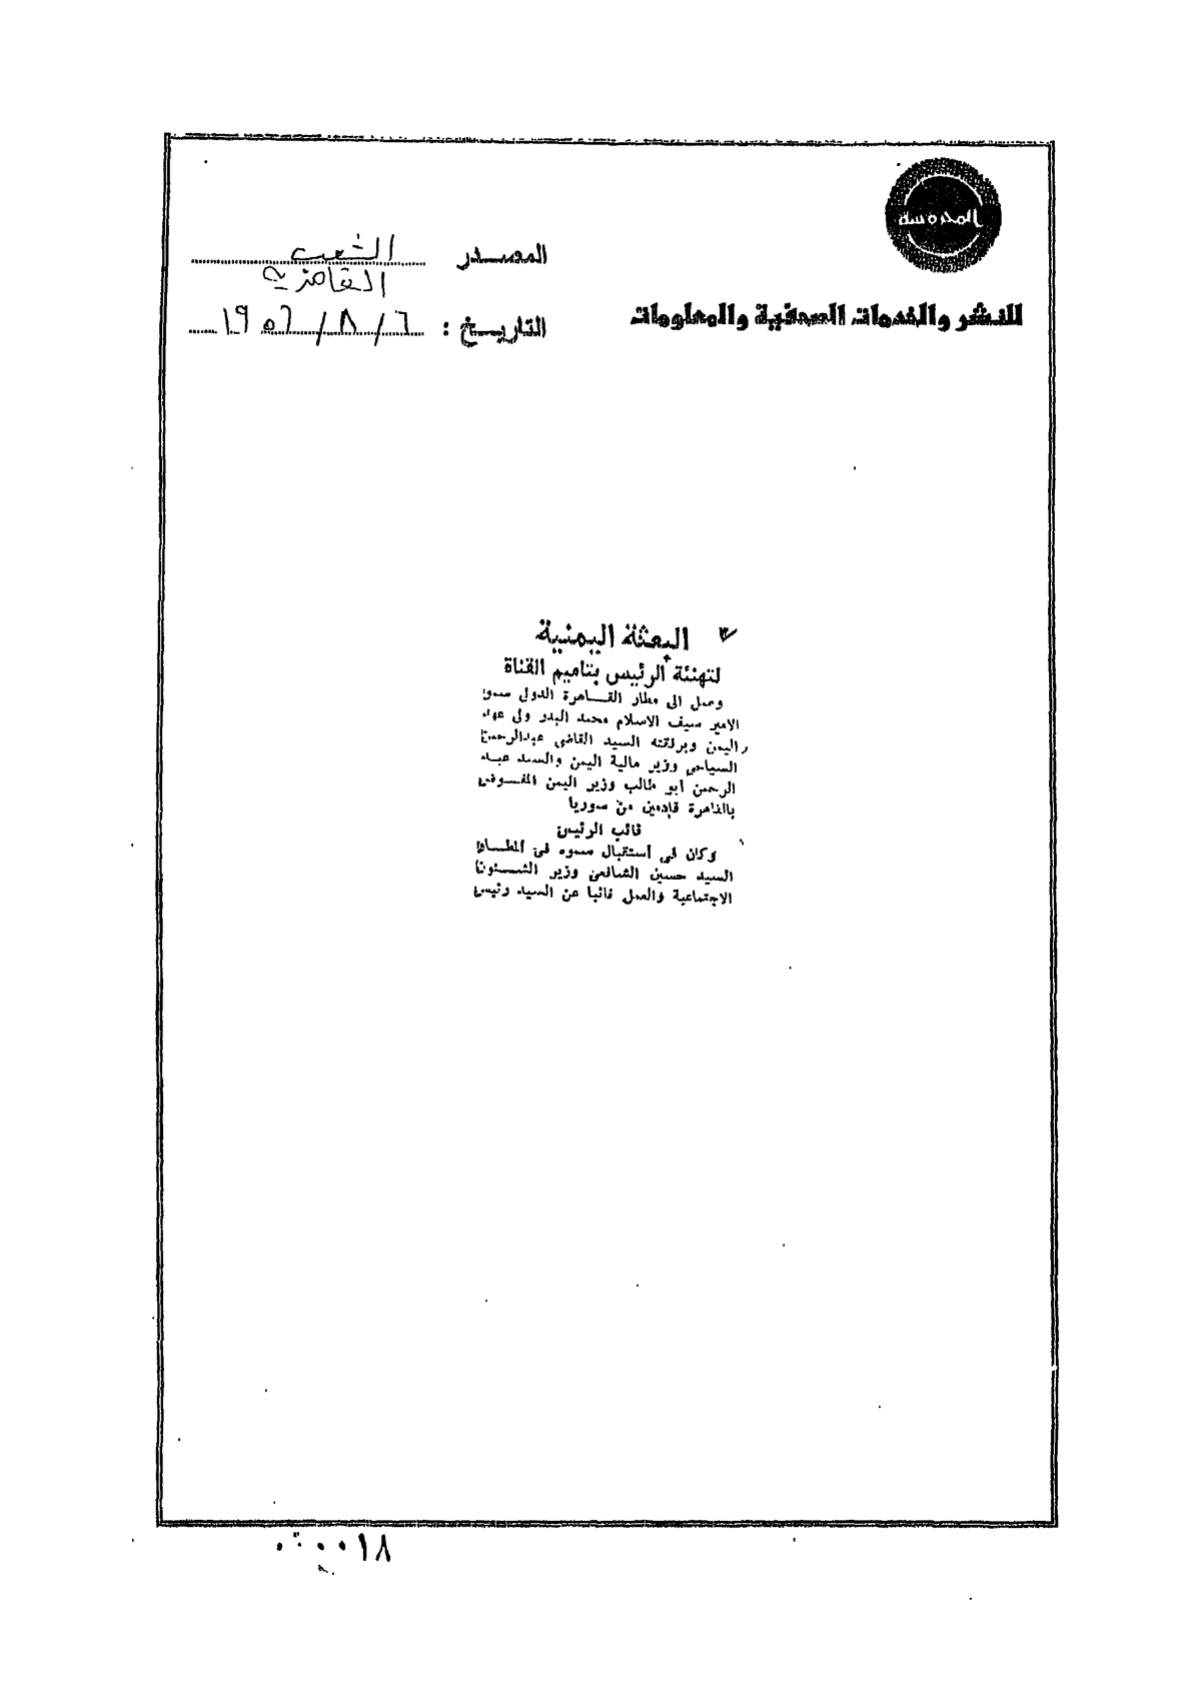 المحروسة
للنشر والخدمات الصحفية والمعلومات
المصدر الشعب
القاهرية
التاريخ : ٦ / ٨ / ١٩٥٦
البعثة اليمنية
لتهنئة الرئيس بتاميم القناة
وصل الى مطار القاهرة الدولى سمو
الامير سيف الاسلام محمد البدر ولى عهد
اليمن وبرفقته السيد القاضى عبدالرحمن
السياجى وزير مالية اليمن والسيد عبد
الرحمن أبو طالب وزير اليمن المفوض
بالقاهرة قادمين من سوريا
نائب الرئيس
وكان فى استقبال سموه فى المطار
السيد حسين الشافعى وزير الشئون
الاجتماعية والعمل نائبا عن السيد رئيس